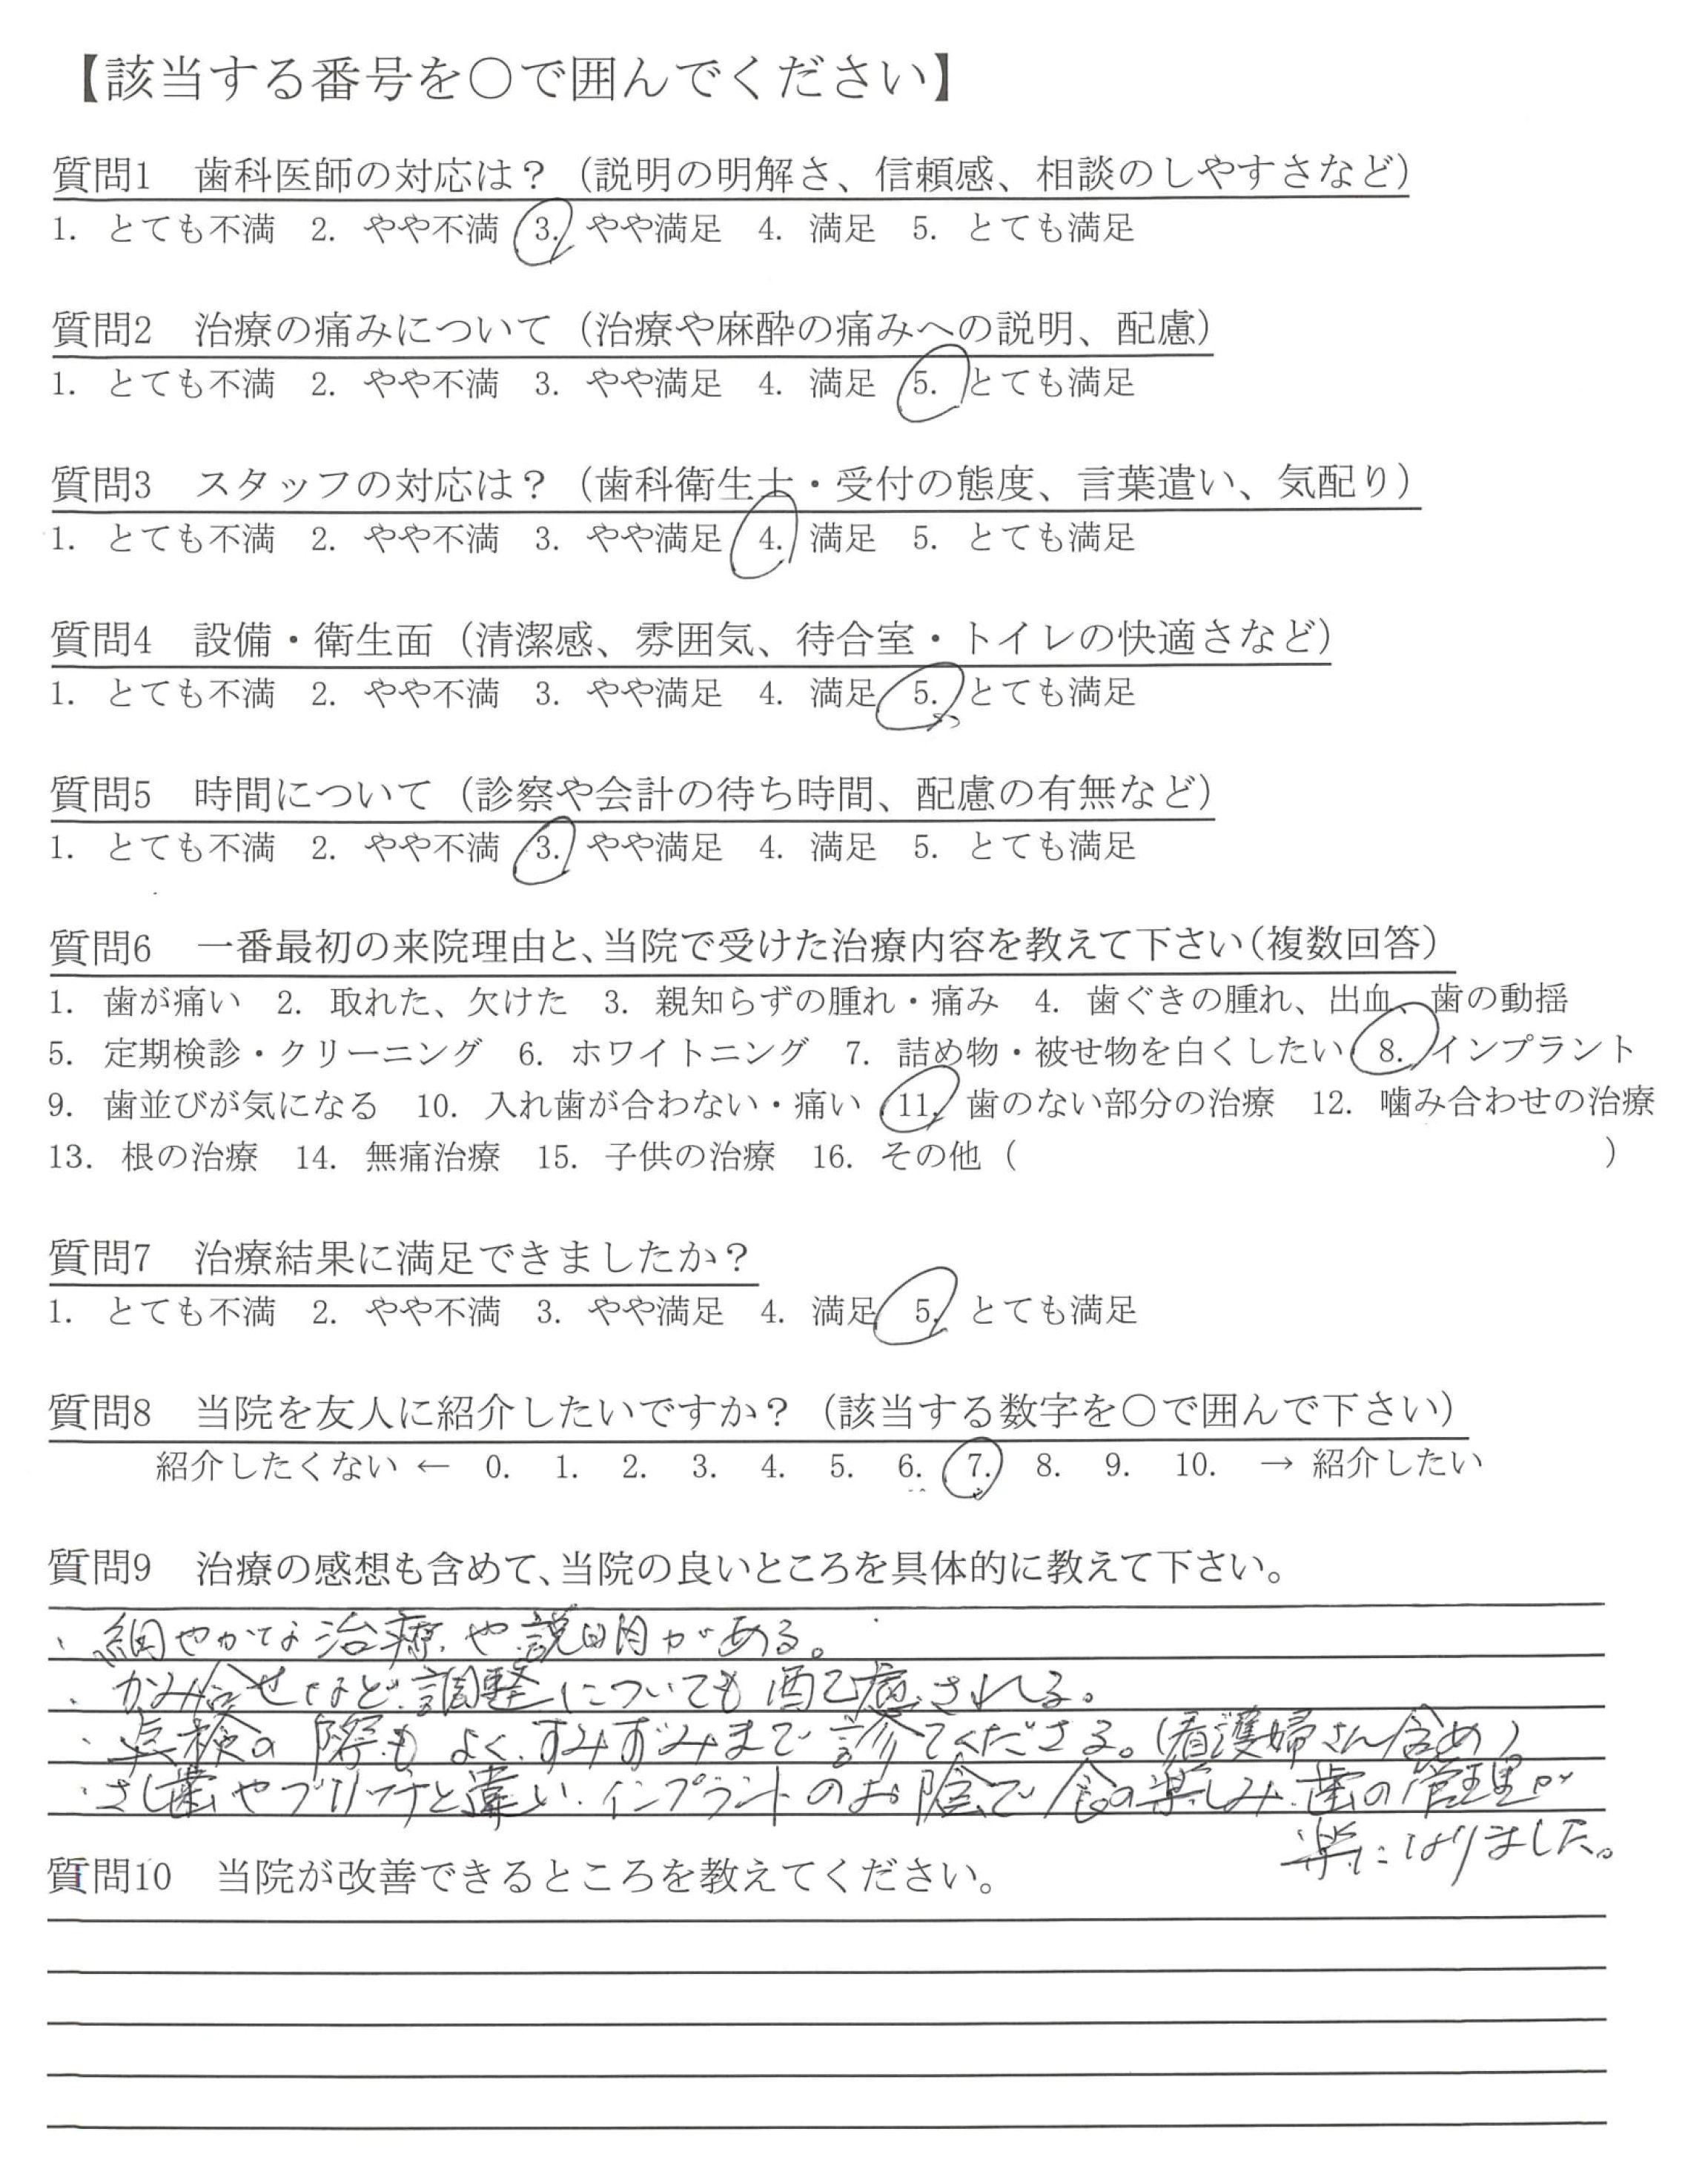 【該当する番号を○で囲んでください】
質問1　歯科医師の対応は？（説明の明解さ、信頼感、相談のしやすさなど）
1. とても不満　2. やや不満　3. やや満足　4. 満足　5. とても満足
質問2　治療の痛みについて（治療や麻酔の痛みへの説明、配慮）
1. とても不満　2. やや不満　3. やや満足　4. 満足　5. とても満足
質問3　スタッフの対応は？（歯科衛生士・受付の態度、言葉遣い、気配り）
1. とても不満　2. やや不満　3. やや満足　4. 満足　5. とても満足
質問4　設備・衛生面（清潔感、雰囲気、待合室・トイレの快適さなど）
1. とても不満　2. やや不満　3. やや満足　4. 満足　5. とても満足
質問5　時間について（診察や会計の待ち時間、配慮の有無など）
1. とても不満　2. やや不満　3. やや満足　4. 満足　5. とても満足
質問6　一番最初の来院理由と、当院で受けた治療内容を教えて下さい（複数回答）
1. 歯が痛い　2. 取れた、欠けた　3. 親知らずの腫れ・痛み　4. 歯ぐきの腫れ、出血、歯の動揺
5. 定期検診・クリーニング　6. ホワイトニング　7. 詰め物・被せ物を白くしたい　8. インプラント
9. 歯並びが気になる　10. 入れ歯が合わない・痛い　11. 歯のない部分の治療　12. 噛み合わせの治療
13. 根の治療　14. 無痛治療　15. 子供の治療　16. その他（　　　）
質問7　治療結果に満足できましたか？
1. とても不満　2. やや不満　3. やや満足　4. 満足　5. とても満足
質問8　当院を友人に紹介したいですか？（該当する数字を○で囲んで下さい）
紹介したくない ← 0. 1. 2. 3. 4. 5. 6. 7. 8. 9. 10. → 紹介したい
質問9　治療の感想も含めて、当院の良いところを具体的に教えて下さい。
・細やかな治療や説明がある。
・かみ合せなど調整についても配慮される。
・点検の際もよくすみずみまで診てくださる。（看護婦さん含め）
・さし歯やブリッヂと違い、インプラントのお陰で食の楽しみ、歯の管理が
楽になりました。
質問10　当院が改善できるところを教えてください。